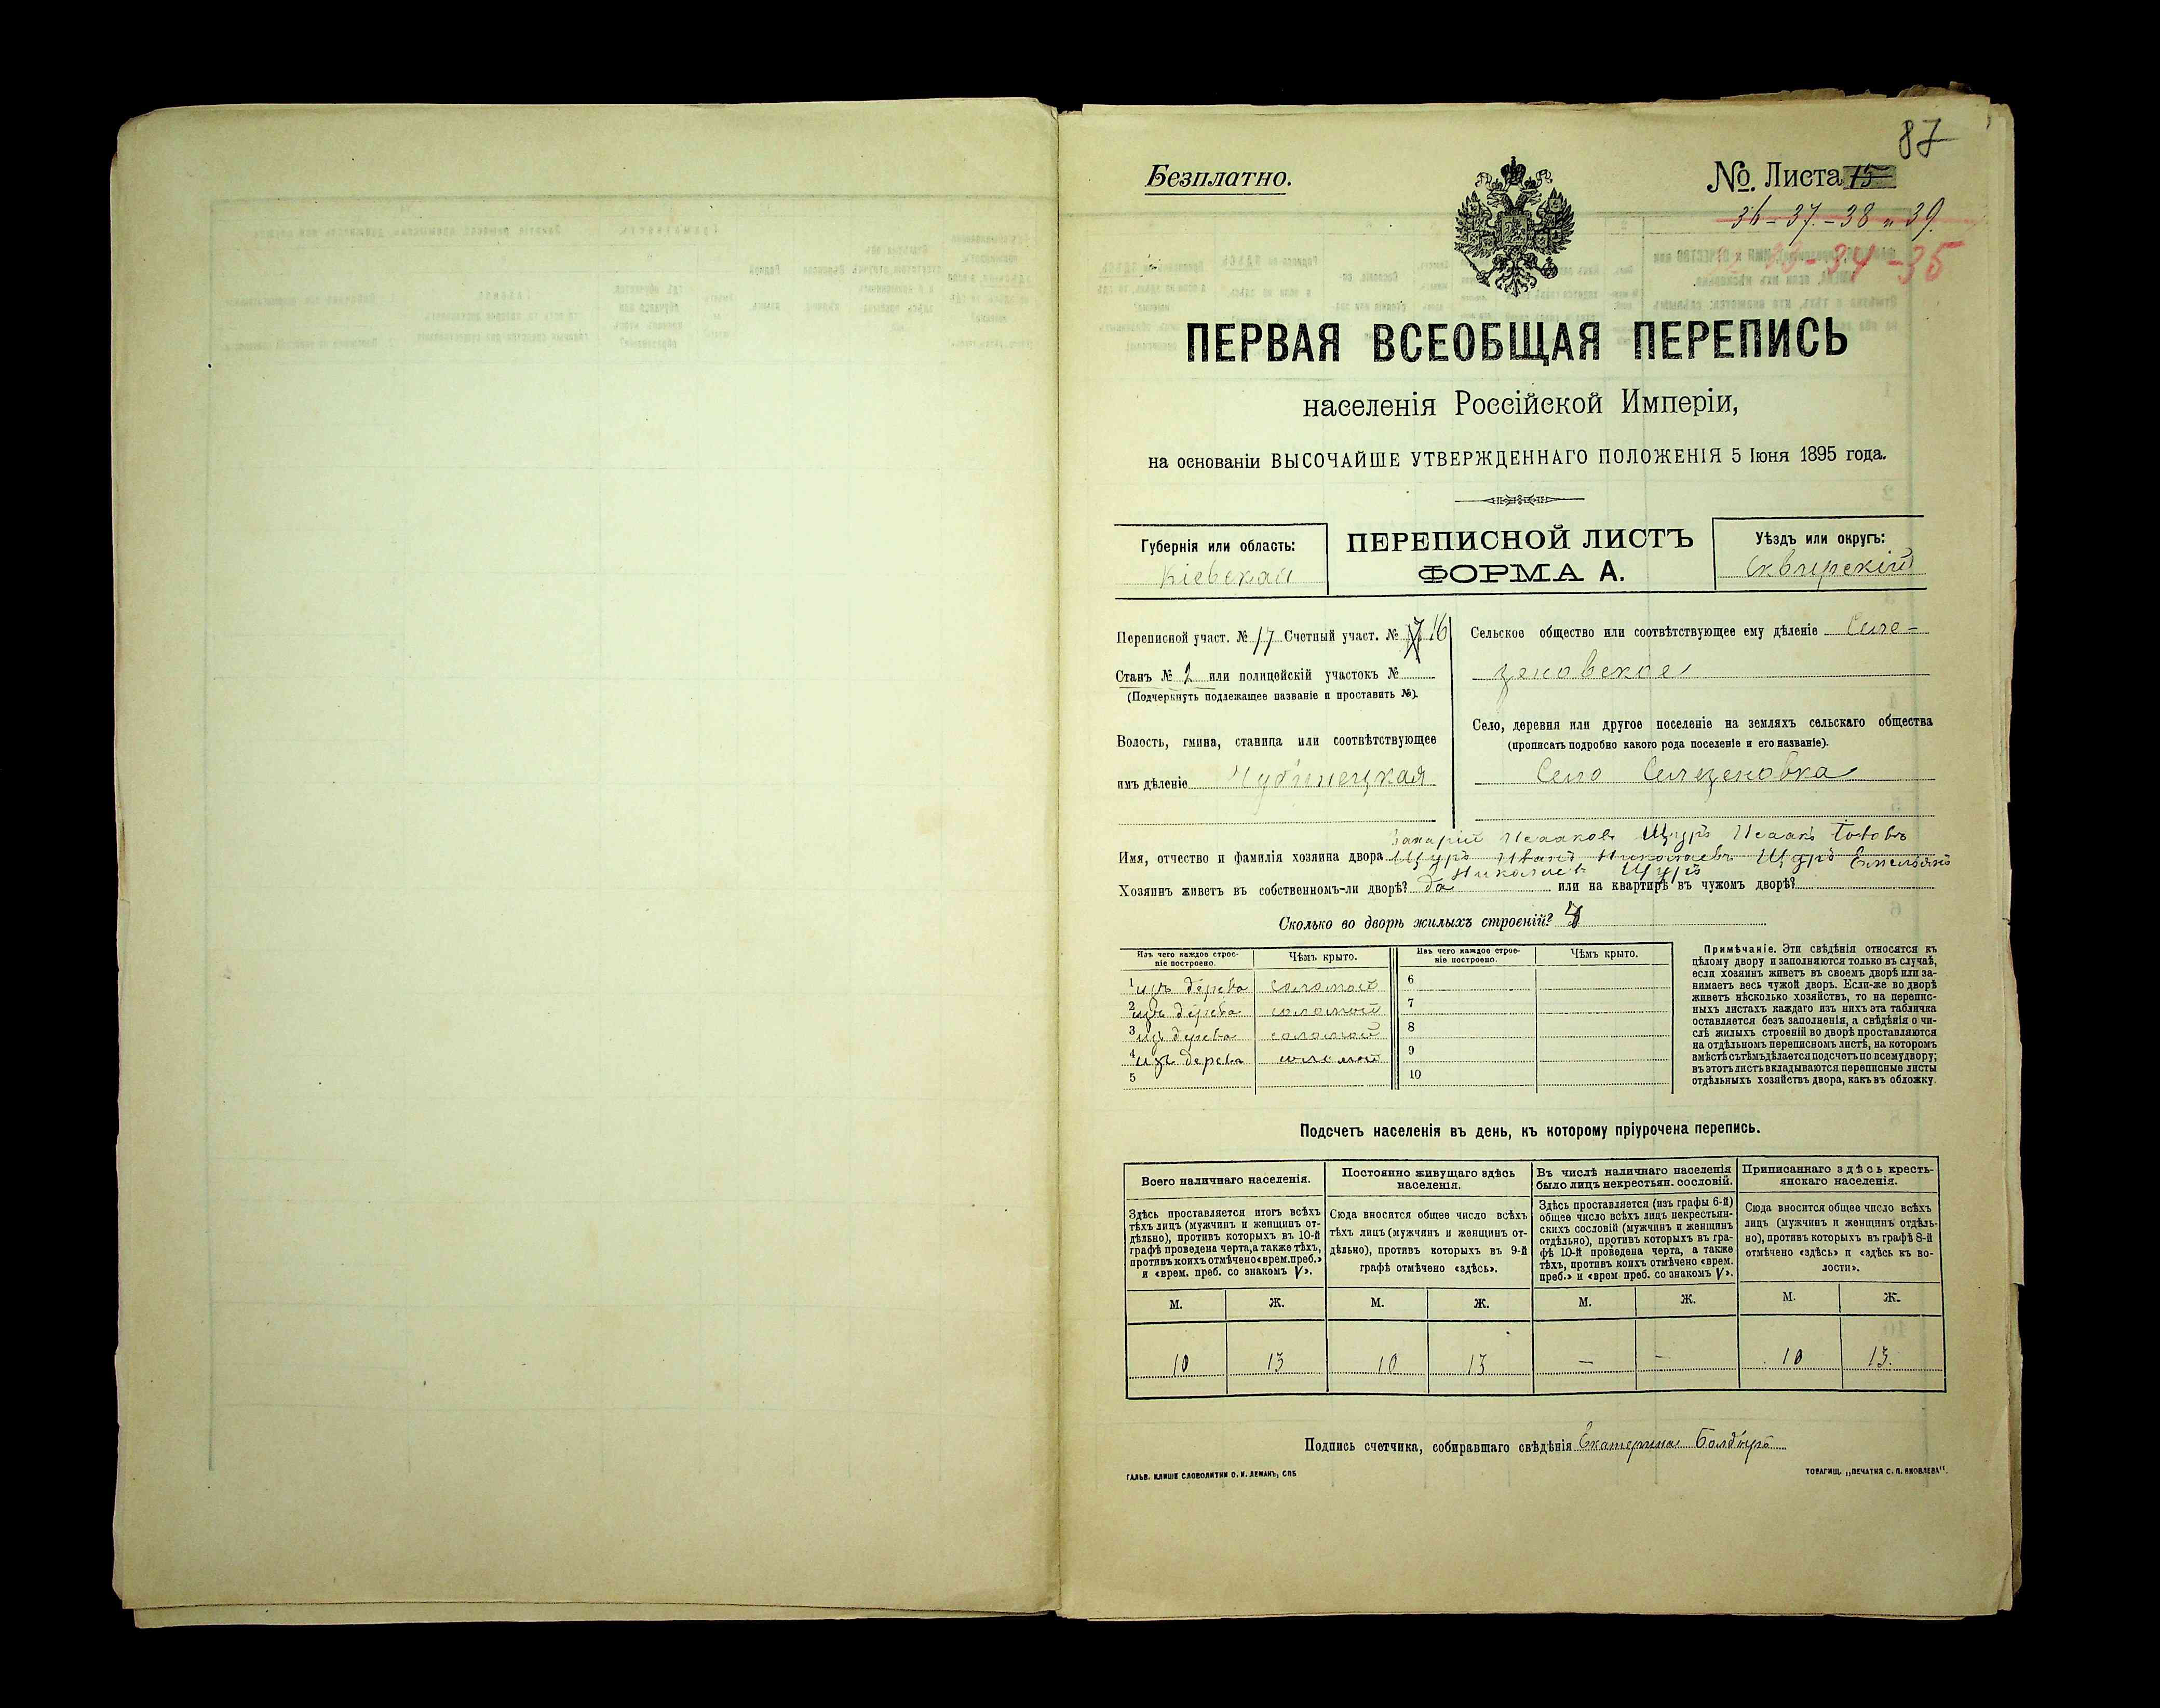 87
Безплатно.
№. Листа 15
36-37-38 и 39.
33-34-35
ПЕРВАЯ ВСЕОБЩАЯ ПЕРЕПИСЬ
населенія Россійской Имперіи,
на основаніи ВЫСОЧАЙШЕ УТВЕРЖДЕННАГО ПОЛОЖЕНІЯ 5 Іюня 1895 года.
Губернія или область:
Кіевская
ПЕРЕПИСНОЙ ЛИСТЪ
ФОРМА А.
Уѣздъ или округъ:
Сквирскій
Переписной участ. № 17 Счетный участ. № 16
Станъ № 2 или полицейскій участокъ №
(Подчеркнуть подлежащее названіе и проставить №).
Волость, гмина, станица или соотвѣтствующее
имъ дѣленіе Чубинецкая
Сельское общество или соотвѣтствующее ему дѣленіе Селе-
зеновское
Село, деревня или другое поселеніе на земляхъ сельскаго общества
(прописать подробно какого рода поселеніе и его названіе).
Село Селезеновка
Захарій Исааковъ Щуръ Исаакъ Іововъ
Имя, отчество и фамилія хозяина двора Щуръ Иванъ Николаевъ Щуръ Емельянъ
Николаевъ Щуръ
Хозяинъ живетъ въ собственномъ-ли дворѣ? да или на квартирѣ въ чужомъ дворѣ?
Сколько во дворѣ жилыхъ строеній? 4
Изъ чего каждое строе-
ніе построено.
Чѣмъ крыто.
Изъ чего каждое строе-
ніе построено.
Чѣмъ крыто.
1 изъ дерева соломой 6
2 изъ дерева соломой 7
3 изъ дерева соломой 8
4 изъ дерева соломой 9
5 10
Примѣчаніе. Эти свѣдѣнія относятся къ
цѣлому двору и заполняются только въ случаѣ,
если хозяинъ живетъ въ своемъ дворѣ или за-
нимаетъ весь чужой дворъ. Если-же во дворѣ
живетъ нѣсколько хозяйствъ, то на перепис-
ныхъ листахъ каждаго изъ нихъ эта табличка
оставляется безъ заполненія, а свѣдѣнія о чи-
слѣ жилыхъ строеній во дворѣ проставляются
на отдѣльномъ переписномъ листѣ, на которомъ
вмѣстѣ съ тѣмъ дѣлается подсчетъ по всему двору;
въ этотъ листъ вкладываются переписные листы
отдѣльныхъ хозяйствъ двора, какъ въ обложку.
Подсчетъ населенія въ день, къ которому пріурочена перепись.
Всего наличнаго населенія.
Здѣсь проставляется итогъ всѣхъ
тѣхъ лицъ (мужчинъ и женщинъ от-
дѣльно), противъ которыхъ въ 10-й
графѣ проведена черта, а также тѣхъ,
противъ коихъ отмѣчено «врем. преб.»
и «врем. преб. со знакомъ V».
Постоянно живущаго здѣсь
населенія.
Сюда вносится общее число всѣхъ
тѣхъ лицъ (мужчинъ и женщинъ от-
дѣльно), противъ которыхъ въ 9-й
графѣ отмѣчено «здѣсь».
Въ числѣ наличнаго населенія
было лицъ некрестьян. сословій.
Здѣсь проставляется (изъ графы 6-й)
общее число всѣхъ лицъ некрестьян-
скихъ сословій (мужчинъ и женщинъ
отдѣльно), противъ которыхъ въ гра-
фѣ 10-й проведена черта, а также
тѣхъ, противъ коихъ отмѣчено «врем.
преб.» и «врем преб. со знакомъ V».
Приписаннаго здѣсь кресть-
янскаго населенія.
Сюда вносится общее число всѣхъ
лицъ (мужчинъ и женщинъ отдѣль-
но), противъ которыхъ въ графѣ 8-й
отмѣчено «здѣсь» и «здѣсь къ во-
лости».
М. Ж. М. Ж. М. Ж. М. Ж.
10 13 10 13 — — 10 13.
Подпись счетчика, собиравшаго свѣдѣнія Екатерина Болдыръ
ГАЛЬВ. КЛИШЕ СЛОВОЛИТНИ О. И. ЛЕМАНЪ, СПБ
ТОВАРИЩ. „ПЕЧАТНЯ С. П. ЯКОВЛЕВА".